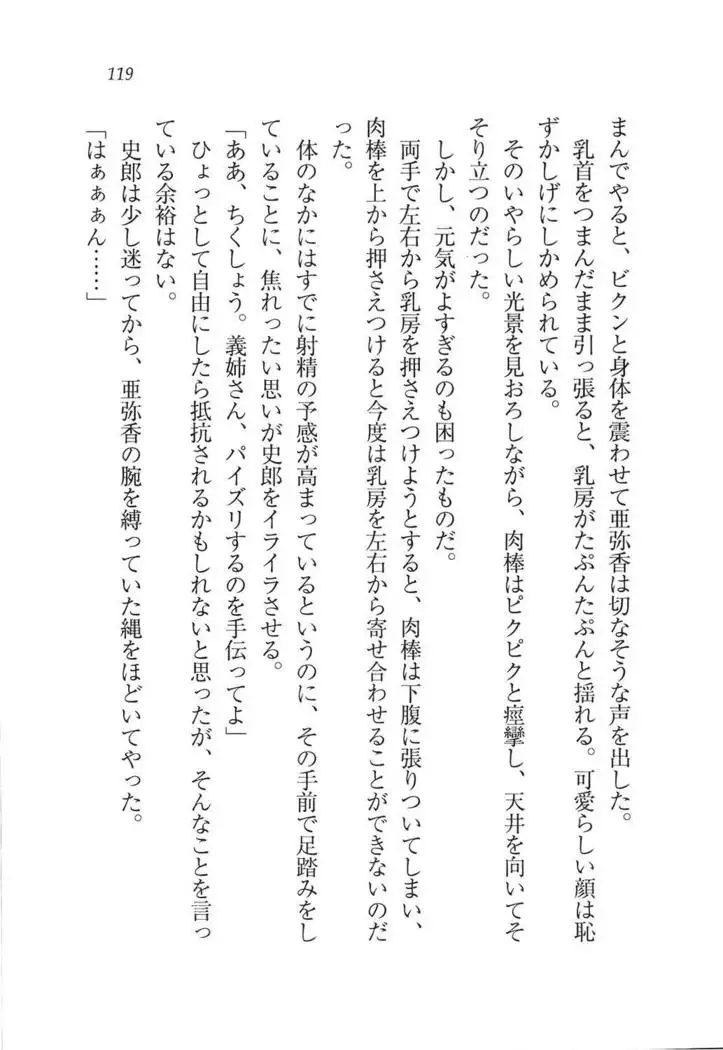 119
まんでやると、ビクンと身体を震わせて亜弥香は切なそうな声を出した。
乳首をつまんだまま引っ張ると、乳房がたぷんたぷんと揺れる。可愛らしい顔は恥
ずかしげにしかめられている。
そのいやらしい光景を見おろしながら、肉棒はピクピクと痙攣し、天井を向いてそ
そり立つのだった。
しかし、元気がよすぎるのも困ったものだ。
両手で左右から乳房を押さえつけようとすると、肉棒は下腹に張りついてしまい、
肉棒を上から押さえつけると今度は乳房を左右から寄せ合わせることができないのだ
った。
体のなかにはすでに射精の予感が高まっているというのに、その手前で足踏みをし
ていることに、焦れったい思いが史郎をイライラさせる。
「ああ、ちくしょう。義姉さん、パイズリするのを手伝ってよ」
ひょっとして自由にしたら抵抗されるかもしれないと思ったが、そんなことを言っ
ている余裕はない。
史郎は少し迷ってから、亜弥香の腕を縛っていた縄をほどいてやった。
「はぁぁぁん……」